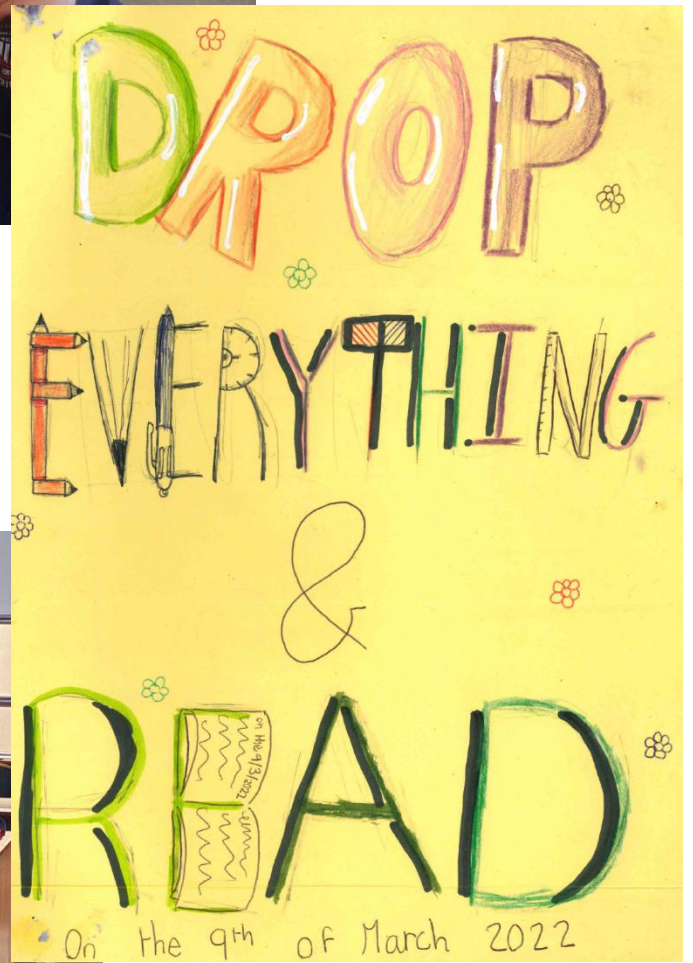 DROP
EVERYTHING
&
READ
on the 9/3/2022
On the 9th of March 2022